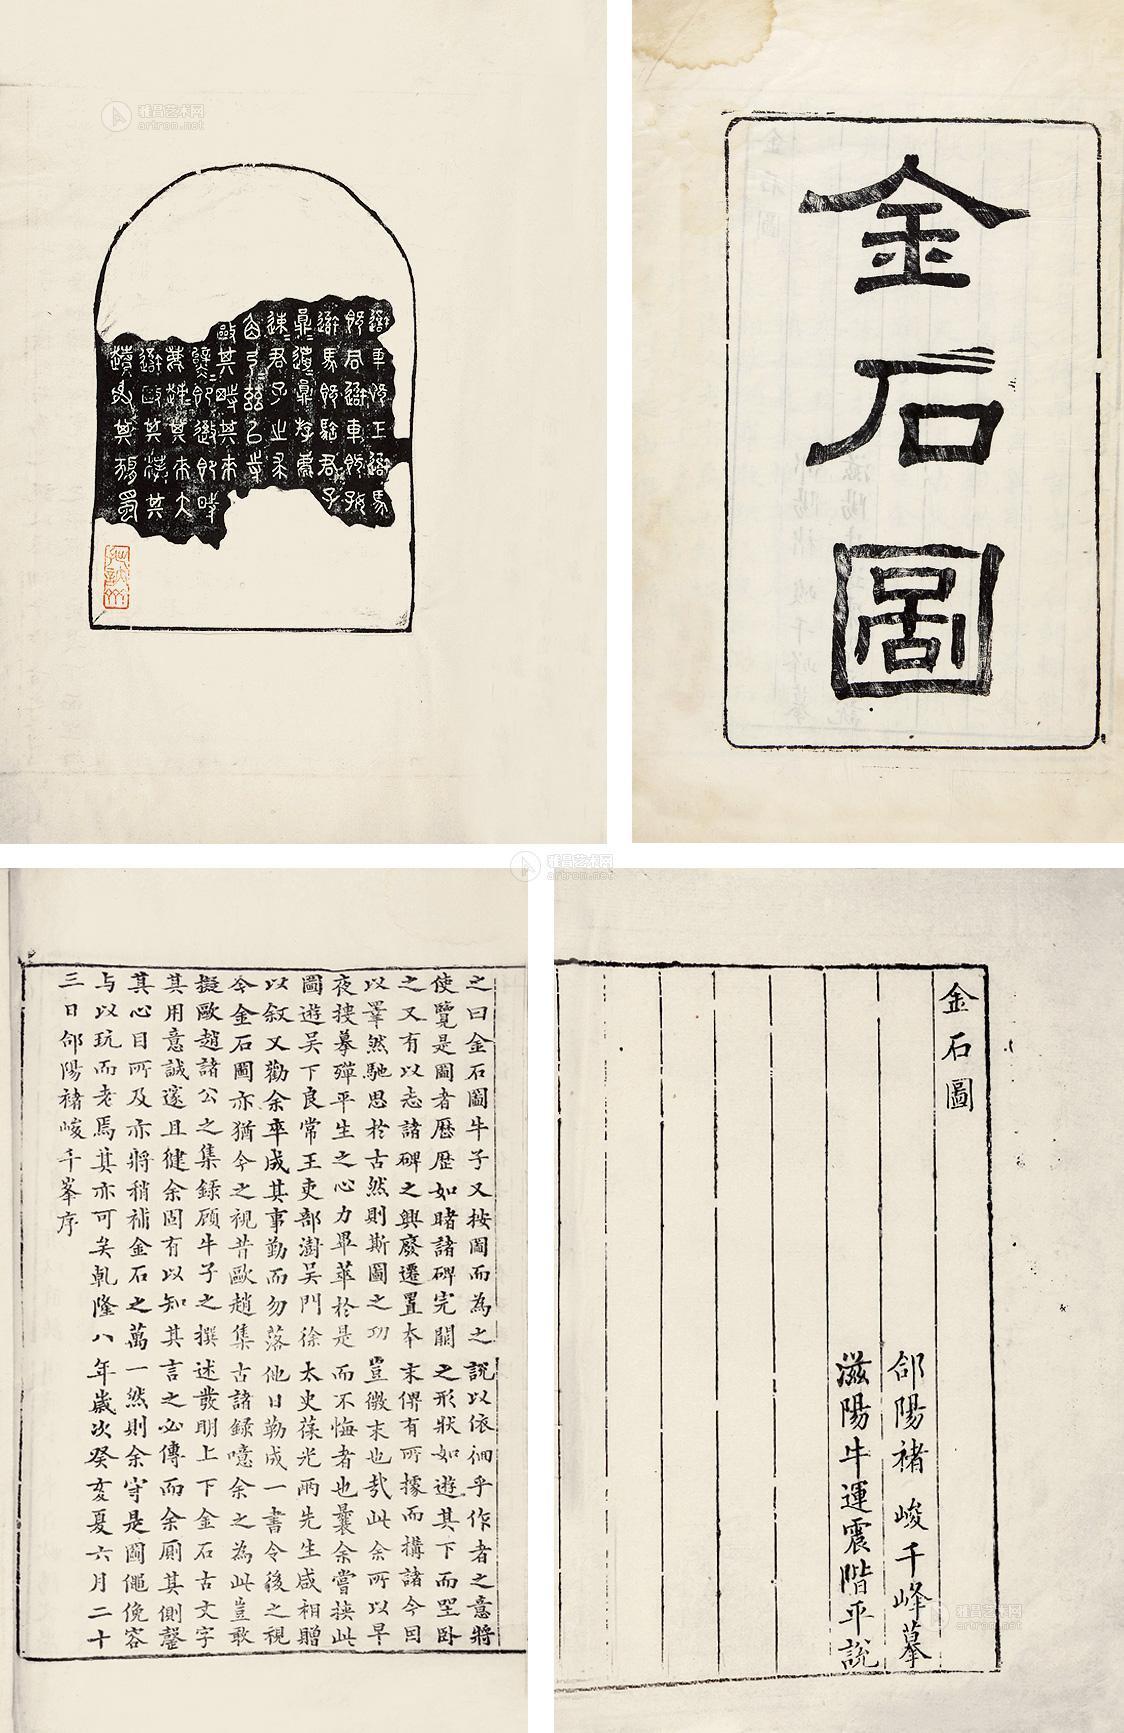 金石圖
車既工
既同 車既好
馬既 君子
君子之求
弓茲以寺
其來
金石圖
郃陽褚峻千峰摹
滋陽牛運震階平說
之曰金石圖牛子又按圖而為之說以依徊乎作者之意將
使覽是圖者歷歷如睹諸碑完闕之形狀如遊其下而坐臥
之又有以志諸碑之興廢遷置本末俾有所據而搆諸今因
以睪然馳思於古然則斯圖之功豈微末也哉此余所以早
夜摟摹殫平生之心力畢萃於是而不悔者也曩余嘗挾此
圖遊吳下良常王吏部澍吳門徐太史葆光兩先生咸相贈
以叙又勸余卒成其事勤而勿落他日勒成一書令後之視
今金石圖亦猶今之視昔歐趙集古諸錄噫余之為此豈敢
擬歐趙諸公之集錄顧牛子之撰述發明上下金石古文字
其用意誠邃且健余固有以知其言之必傳而余厠其側罄
其心目所及亦將稍補金石之萬一然則余守是圖僶俛容
与以玩而老焉其亦可矣乹隆八年歲次癸亥夏六月二十
三日郃陽褚峻千峯序
雅昌艺术网
artron.net
雅昌艺术网
artron.net
雅昌艺术网
artron.net